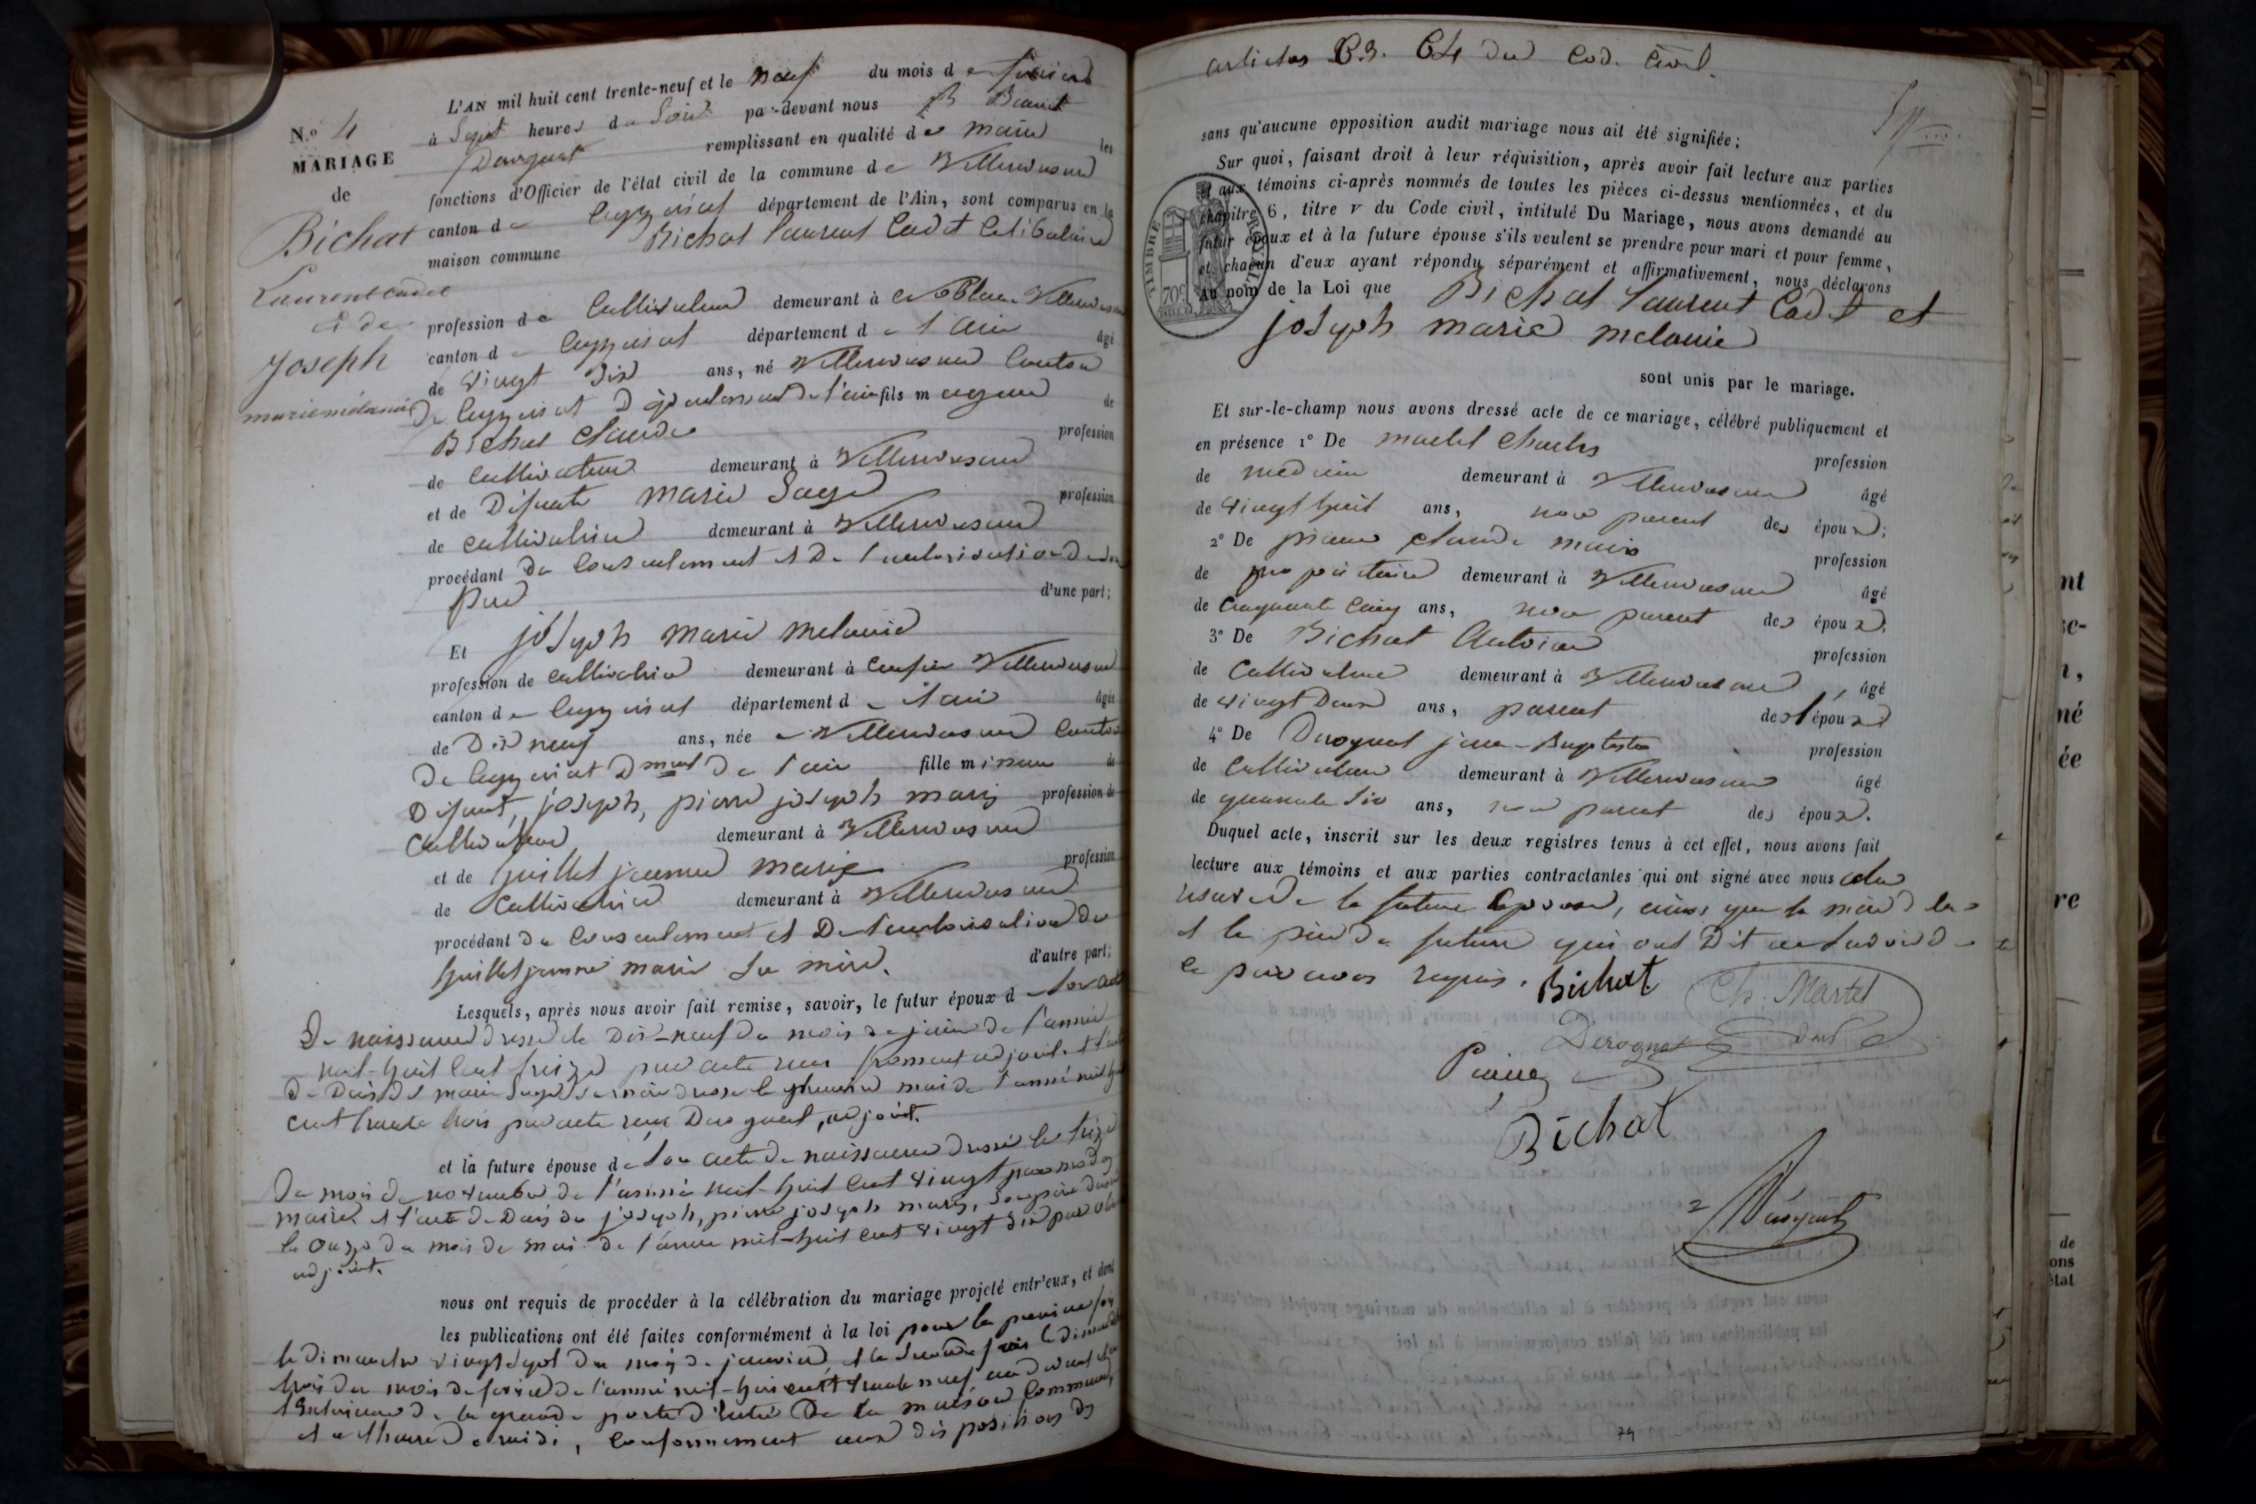 N.° 4
MARIAGE
de
Bichat
Laurent Cadet
& de
Joseph
marie mélanie
L'AN mil huit cent trente-neuf et le neuf du mois de février
à Sept heures du Soir par-devant nous
remplissant en qualité de maire les
fonctions d'Officier de l'état civil de la commune de Villereversure
canton de Ceyzeriat département de l'Ain, sont comparus en la
maison commune Bichat Laurent Cadet Célibataire
profession de Cultivateur demeurant à Villereversure
canton de Ceyzeriat département de l'ain âgé
de vingt Six ans, né Villereversure Canton
de Ceyzeriat Département de l'ain fils majeur de
Bichat Claude profession
de Cultivateur demeurant à Villereversure
et de Défunte marie Laye profession
de Cultivatrice demeurant à Villereversure
procédant du Consentement et De l'autorisation de son
père d'une part;
Et joseph marie melanie
profession de Cultivatrice demeurant à Villereversure
canton de Ceyzeriat département de l'ain âgée
de Dix neuf ans, née à Villereversure Canton
de Ceyzeriat Dment de l'ain fille mineure de
Défunt, joseph, pierre joseph marie profession de
Cultivateur demeurant à Villereversure
et de Guillet jeanne marie profession
de Cultivatrice demeurant à Villereversure
procédant du Consentement et De l'autorisation de
Guillet jeanne marie Sa mère. d'autre part;
Lesquels, après nous avoir fait remise, savoir, le futur époux de Son acte
De naissance dressé le Dix-neuf du mois de juin de l'année
mil-huit Cent treize par acte reçu froment adjoint. et l'acte
de Décès de marie Laye Sa mère dressé le mai de l'année mil huit
cent trente trois par acte reçu Derognat, adjoint.
et la future épouse de Son acte de naissance dressé le treize
Du mois de novembre de l'année mil-huit Cent vingt par
maire et l'acte de Décès de joseph, pierre joseph marie, Son père dressé
le onze du mois de mai de l'année mil-huit cent vingt Six par
adjoint.
nous ont requis de procéder à la célébration du mariage projeté entr'eux, et dont
les publications ont été faites conformément à la loi pour la première fois
le dimanche vingt Sept du mois de janvier, et la Seconde fois le dimanche
trois du mois de février de l'année mil-huit cent trente neuf au devant et
à l'extérieur de la grande porte d'entrée De la maison Commune,
et à l'heure de midi, Conformément aux dispositions des
articles 63. 64 du Cod. Civil.
sans qu'aucune opposition audit mariage nous ait été signifiée;
Sur quoi, faisant droit à leur réquisition, après avoir fait lecture aux parties
et aux témoins ci-après nommés de toutes les pièces ci-dessus mentionnées, et du
chapitre 6, titre v du Code civil, intitulé Du Mariage, nous avons demandé au
futur époux et à la future épouse s'ils veulent se prendre pour mari et pour femme,
et chacun d'eux ayant répondu séparément et affirmativement, nous déclarons
Au nom de la Loi que Bichat Laurent Cadet et
joseph marie melanie
TIMBRE ROYAL
70c
sont unis par le mariage.
Et sur-le-champ nous avons dressé acte de ce mariage, célébré publiquement et
en présence 1° De martel Charles profession
de medecin demeurant à Villereversure âgé
de vingt huit ans, non parent des époux;
2° De Claude marie profession
de propriétaire demeurant à Villereversure âgé
de Cinquante Cinq ans, non parent des époux;
3° De Bichat Antoine profession
de Cultivateur demeurant à Villereversure, âgé
de vingt Deux ans, parent de l'époux
4° De Derognat jean-Baptiste profession
de Cultivateur demeurant à Villereversure âgé
de quarante Six ans, non parent des époux.
Duquel acte, inscrit sur les deux registres tenus à cet effet, nous avons fait
lecture aux témoins et aux parties contractantes qui ont signé avec nous à la
réserve de la future épouse, ainsi que la mère d'elle
et le père du futur qui ont Dit ne Savoir de
ce par nous requis. Bichat Ch. Martel
Derognat
Bichat
74